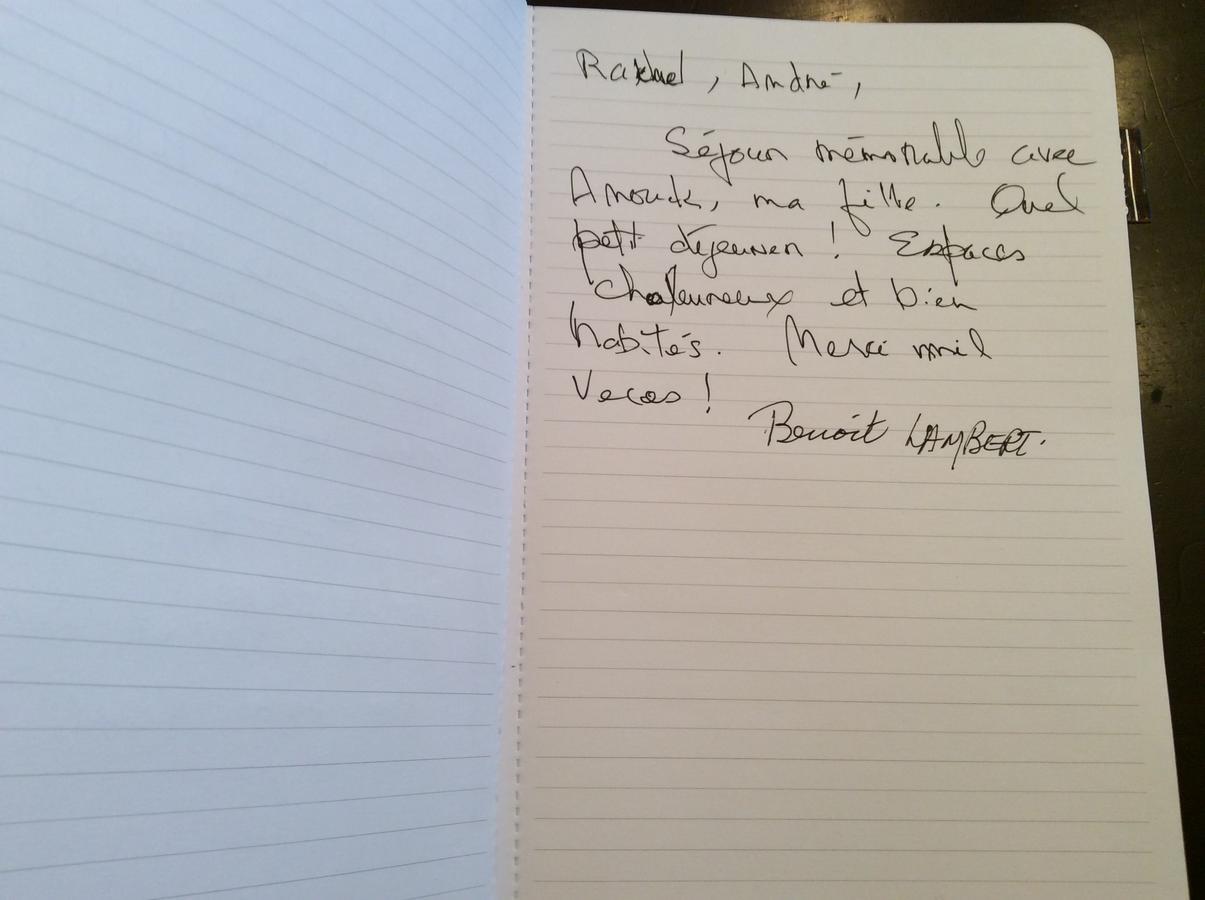 Rakhael, André,
Séjour mémorable avec
Anouck, ma fille. Quel
petit déjeuner ! Espaces
chaleureux et bien
habités. Merci mil
Veces !
Benoît LAMBERT.